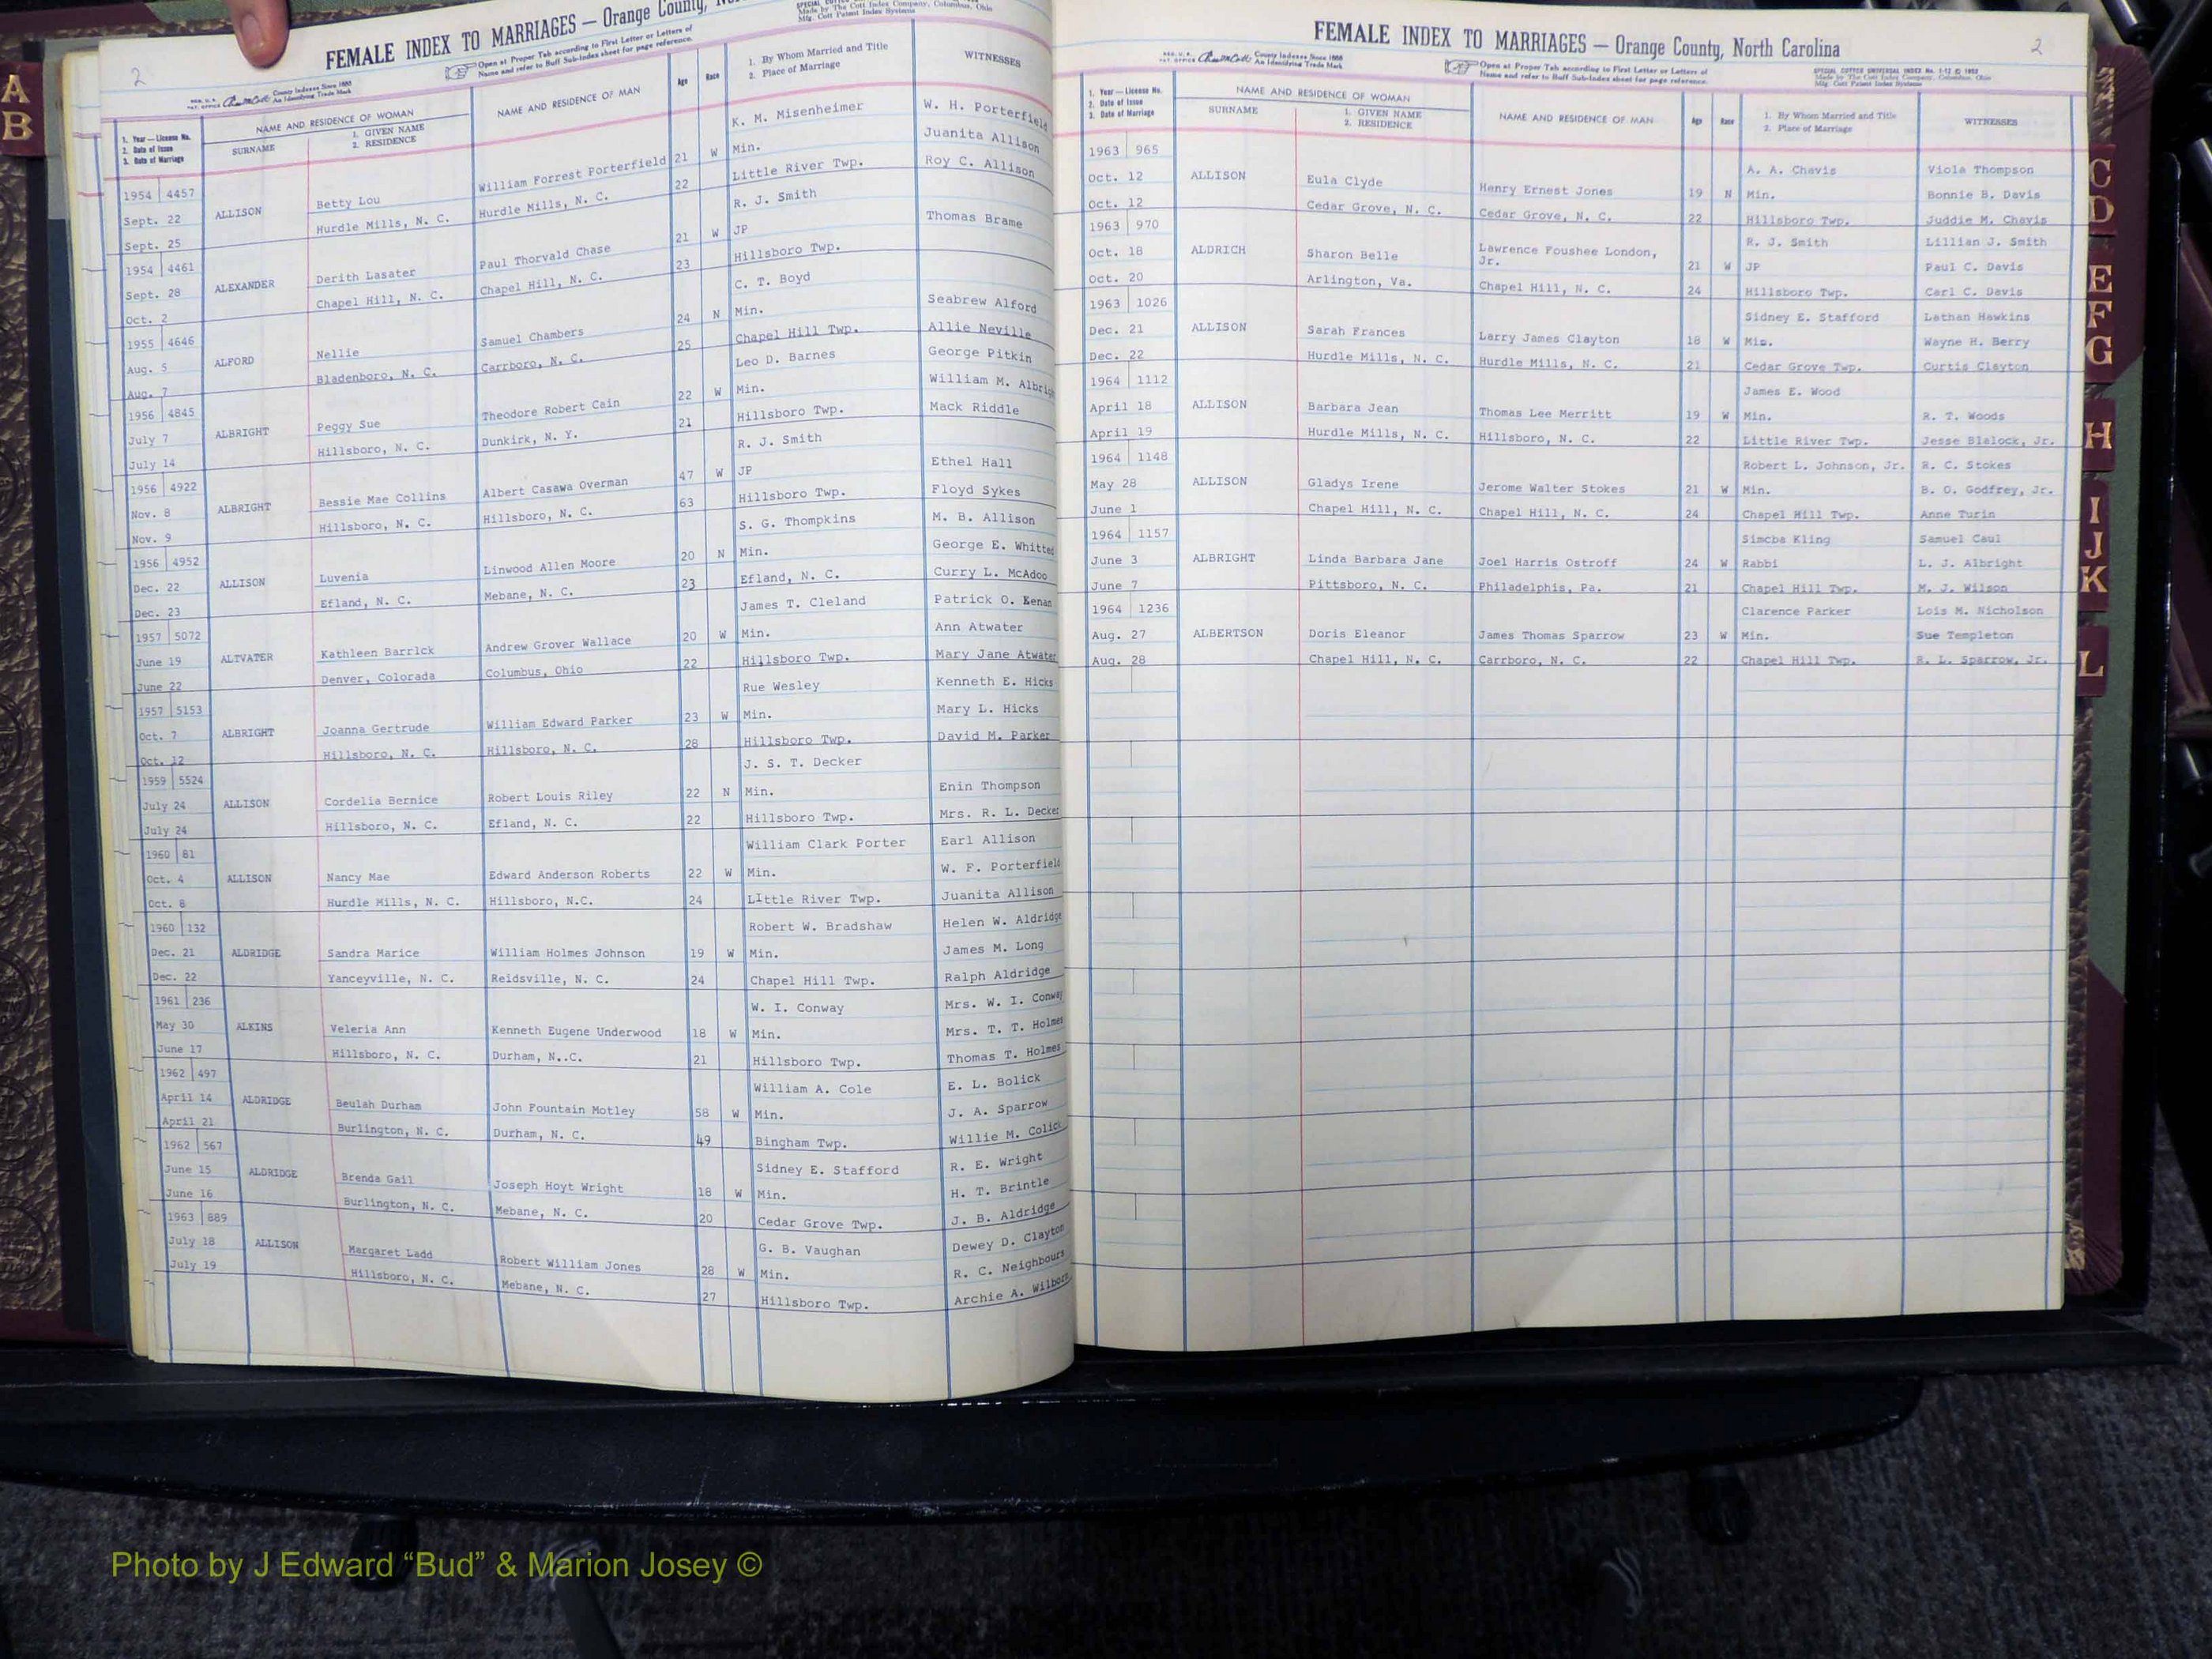 A
B
2
FEMALE INDEX TO MARRIAGES — Orange County,
Made by The Cott Index Company, Columbus, Ohio
Mfg. Cott Patent Index Systems
County Indexes Since 1888
An Identifying Trade Mark
Open at Proper Tab according to First Letter or Letters of
Name and refer to Buff Sub-Index sheet for page reference.
1. Year — License No.
2. Date of Issue
3. Date of Marriage
NAME AND RESIDENCE OF WOMAN
SURNAME
1. GIVEN NAME
2. RESIDENCE
NAME AND RESIDENCE OF MAN
Age
Race
1. By Whom Married and Title
2. Place of Marriage
WITNESSES
1954 4457
Sept. 22
Sept. 25
ALLISON
Betty Lou
Hurdle Mills, N. C.
William Forrest Porterfield
Hurdle Mills, N. C.
21
22
W
K. M. Misenheimer
Min.
Little River Twp.
W. H. Porterfield
Juanita Allison
Roy C. Allison
1954 4461
Sept. 28
Oct. 2
ALEXANDER
Derith Lasater
Chapel Hill, N. C.
Paul Thorvald Chase
Chapel Hill, N. C.
21
23
W
R. J. Smith
JP
Hillsboro Twp.
Thomas Brame
1955 4646
Aug. 5
Aug. 7
ALFORD
Nellie
Bladenboro, N. C.
Samuel Chambers
Carrboro, N. C.
24
25
N
C. T. Boyd
Min.
Chapel Hill Twp.
Seabrew Alford
Allie Neville
1956 4845
July 7
July 14
ALBRIGHT
Peggy Sue
Hillsboro, N. C.
Theodore Robert Cain
Dunkirk, N. Y.
22
21
W
Leo D. Barnes
Min.
Hillsboro Twp.
George Pitkin
William M. Albright
Mack Riddle
1956 4922
Nov. 8
Nov. 9
ALBRIGHT
Bessie Mae Collins
Hillsboro, N. C.
Albert Casawa Overman
Hillsboro, N. C.
47
63
W
R. J. Smith
JP
Hillsboro Twp.
Ethel Hall
Floyd Sykes
1956 4952
Dec. 22
Dec. 23
ALLISON
Luvenia
Efland, N. C.
Linwood Allen Moore
Mebane, N. C.
20
23
N
S. G. Thompkins
Min.
Efland, N. C.
M. B. Allison
George E. Whitted
Curry L. McAdoo
1957 5072
June 19
June 22
ALTVATER
Kathleen Barrick
Denver, Colorada
Andrew Grover Wallace
Columbus, Ohio
20
22
W
James T. Cleland
Min.
Hillsboro Twp.
Patrick O. Kenan
Ann Atwater
Mary Jane Atwater
1957 5153
Oct. 7
Oct. 12
ALBRIGHT
Joanna Gertrude
Hillsboro, N. C.
William Edward Parker
Hillsboro, N. C.
23
28
W
Rue Wesley
Min.
Hillsboro Twp.
Kenneth E. Hicks
Mary L. Hicks
David M. Parker
1959 5524
July 24
July 24
ALLISON
Cordelia Bernice
Hillsboro, N. C.
Robert Louis Riley
Efland, N. C.
22
22
N
J. S. T. Decker
Min.
Hillsboro Twp.
Enin Thompson
Mrs. R. L. Decker
1960 81
Oct. 4
Oct. 8
ALLISON
Nancy Mae
Hurdle Mills, N. C.
Edward Anderson Roberts
Hillsboro, N.C.
22
24
W
William Clark Porter
Min.
LIttle River Twp.
Earl Allison
W. F. Porterfield
Juanita Allison
1960 132
Dec. 21
Dec. 22
ALDRIDGE
Sandra Marice
Yanceyville, N. C.
William Holmes Johnson
Reidsville, N. C.
19
24
W
Robert W. Bradshaw
Min.
Chapel Hill Twp.
Helen W. Aldridge
James M. Long
Ralph Aldridge
1961 236
May 30
June 17
ALKINS
Veleria Ann
Hillsboro, N. C.
Kenneth Eugene Underwood
Durham, N..C.
18
21
W
W. I. Conway
Min.
Hillsboro Twp.
Mrs. W. I. Conway
Mrs. T. T. Holmes
Thomas T. Holmes
1962 497
April 14
April 21
ALDRIDGE
Beulah Durham
Burlington, N. C.
John Fountain Motley
Durham, N. C.
58
49
W
William A. Cole
Min.
Bingham Twp.
E. L. Bolick
J. A. Sparrow
Willie M. Colick
1962 567
June 15
June 16
ALDRIDGE
Brenda Gail
Burlington, N. C.
Joseph Hoyt Wright
Mebane, N. C.
18
20
W
Sidney E. Stafford
Min.
Cedar Grove Twp.
R. E. Wright
H. T. Brintle
J. B. Aldridge
1963 889
July 18
July 19
ALLISON
Margaret Ladd
Hillsboro, N. C.
Robert William Jones
Mebane, N. C.
28
27
W
G. B. Vaughan
Min.
Hillsboro Twp.
Dewey D. Clayton
R. C. Neighbours
Archie A. Wilborn
FEMALE INDEX TO MARRIAGES — Orange County, North Carolina
2
County Indexes Since 1888
An Identifying Trade Mark
Open at Proper Tab according to First Letter or Letters of
Name and refer to Buff Sub-Index sheet for page reference.
Made by The Cott Index Company, Columbus, Ohio
Mfg. Cott Patent Index Systems
1. Year — License No.
2. Date of Issue
3. Date of Marriage
NAME AND RESIDENCE OF WOMAN
SURNAME
1. GIVEN NAME
2. RESIDENCE
NAME AND RESIDENCE OF MAN
Age
Race
1. By Whom Married and Title
2. Place of Marriage
WITNESSES
1963 965
Oct. 12
Oct. 12
ALLISON
Eula Clyde
Cedar Grove, N. C.
Henry Ernest Jones
Cedar Grove, N. C.
19
22
N
A. A. Chavis
Min.
Hillsboro Twp.
Viola Thompson
Bonnie B. Davis
Juddie M. Chavis
1963 970
Oct. 18
Oct. 20
ALDRICH
Sharon Belle
Arlington, Va.
Lawrence Foushee London,
Jr.
Chapel Hill, N. C.
21
24
W
R. J. Smith
JP
Hillsboro Twp.
Lillian J. Smith
Paul C. Davis
Carl C. Davis
1963 1026
Dec. 21
Dec. 22
ALLISON
Sarah Frances
Hurdle Mills, N. C.
Larry James Clayton
Hurdle Mills, N. C.
18
21
W
Sidney E. Stafford
Min.
Cedar Grove Twp.
Lathan Hawkins
Wayne H. Berry
Curtis Clayton
1964 1112
April 18
April 19
ALLISON
Barbara Jean
Hurdle Mills, N. C.
Thomas Lee Merritt
Hillsboro, N. C.
19
22
W
James E. Wood
Min.
Little River Twp.
R. T. Woods
Jesse Blalock, Jr.
1964 1148
May 28
June 1
ALLISON
Gladys Irene
Chapel Hill, N. C.
Jerome Walter Stokes
Chapel Hill, N. C.
21
24
W
Robert L. Johnson, Jr.
Min.
Chapel Hill Twp.
R. C. Stokes
B. O. Godfrey, Jr.
Anne Turin
1964 1157
June 3
June 7
ALBRIGHT
Linda Barbara Jane
Pittsboro, N. C.
Joel Harris Ostroff
Philadelphis, Pa.
24
21
W
Simcha Kling
Rabbi
Chapel Hill Twp.
Samuel Caul
L. J. Albright
M. J. Wilson
1964 1236
Aug. 27
Aug. 28
ALBERTSON
Doris Eleanor
Chapel Hill, N. C.
James Thomas Sparrow
Carrboro, N. C.
23
22
W
Clarence Parker
Min.
Chapel Hill Twp.
Lois M. Nicholson
Sue Templeton
R. L. Sparrow, Jr.
C
D
E
F
G
H
I
J
K
L
Photo by J Edward “Bud” & Marion Josey ©